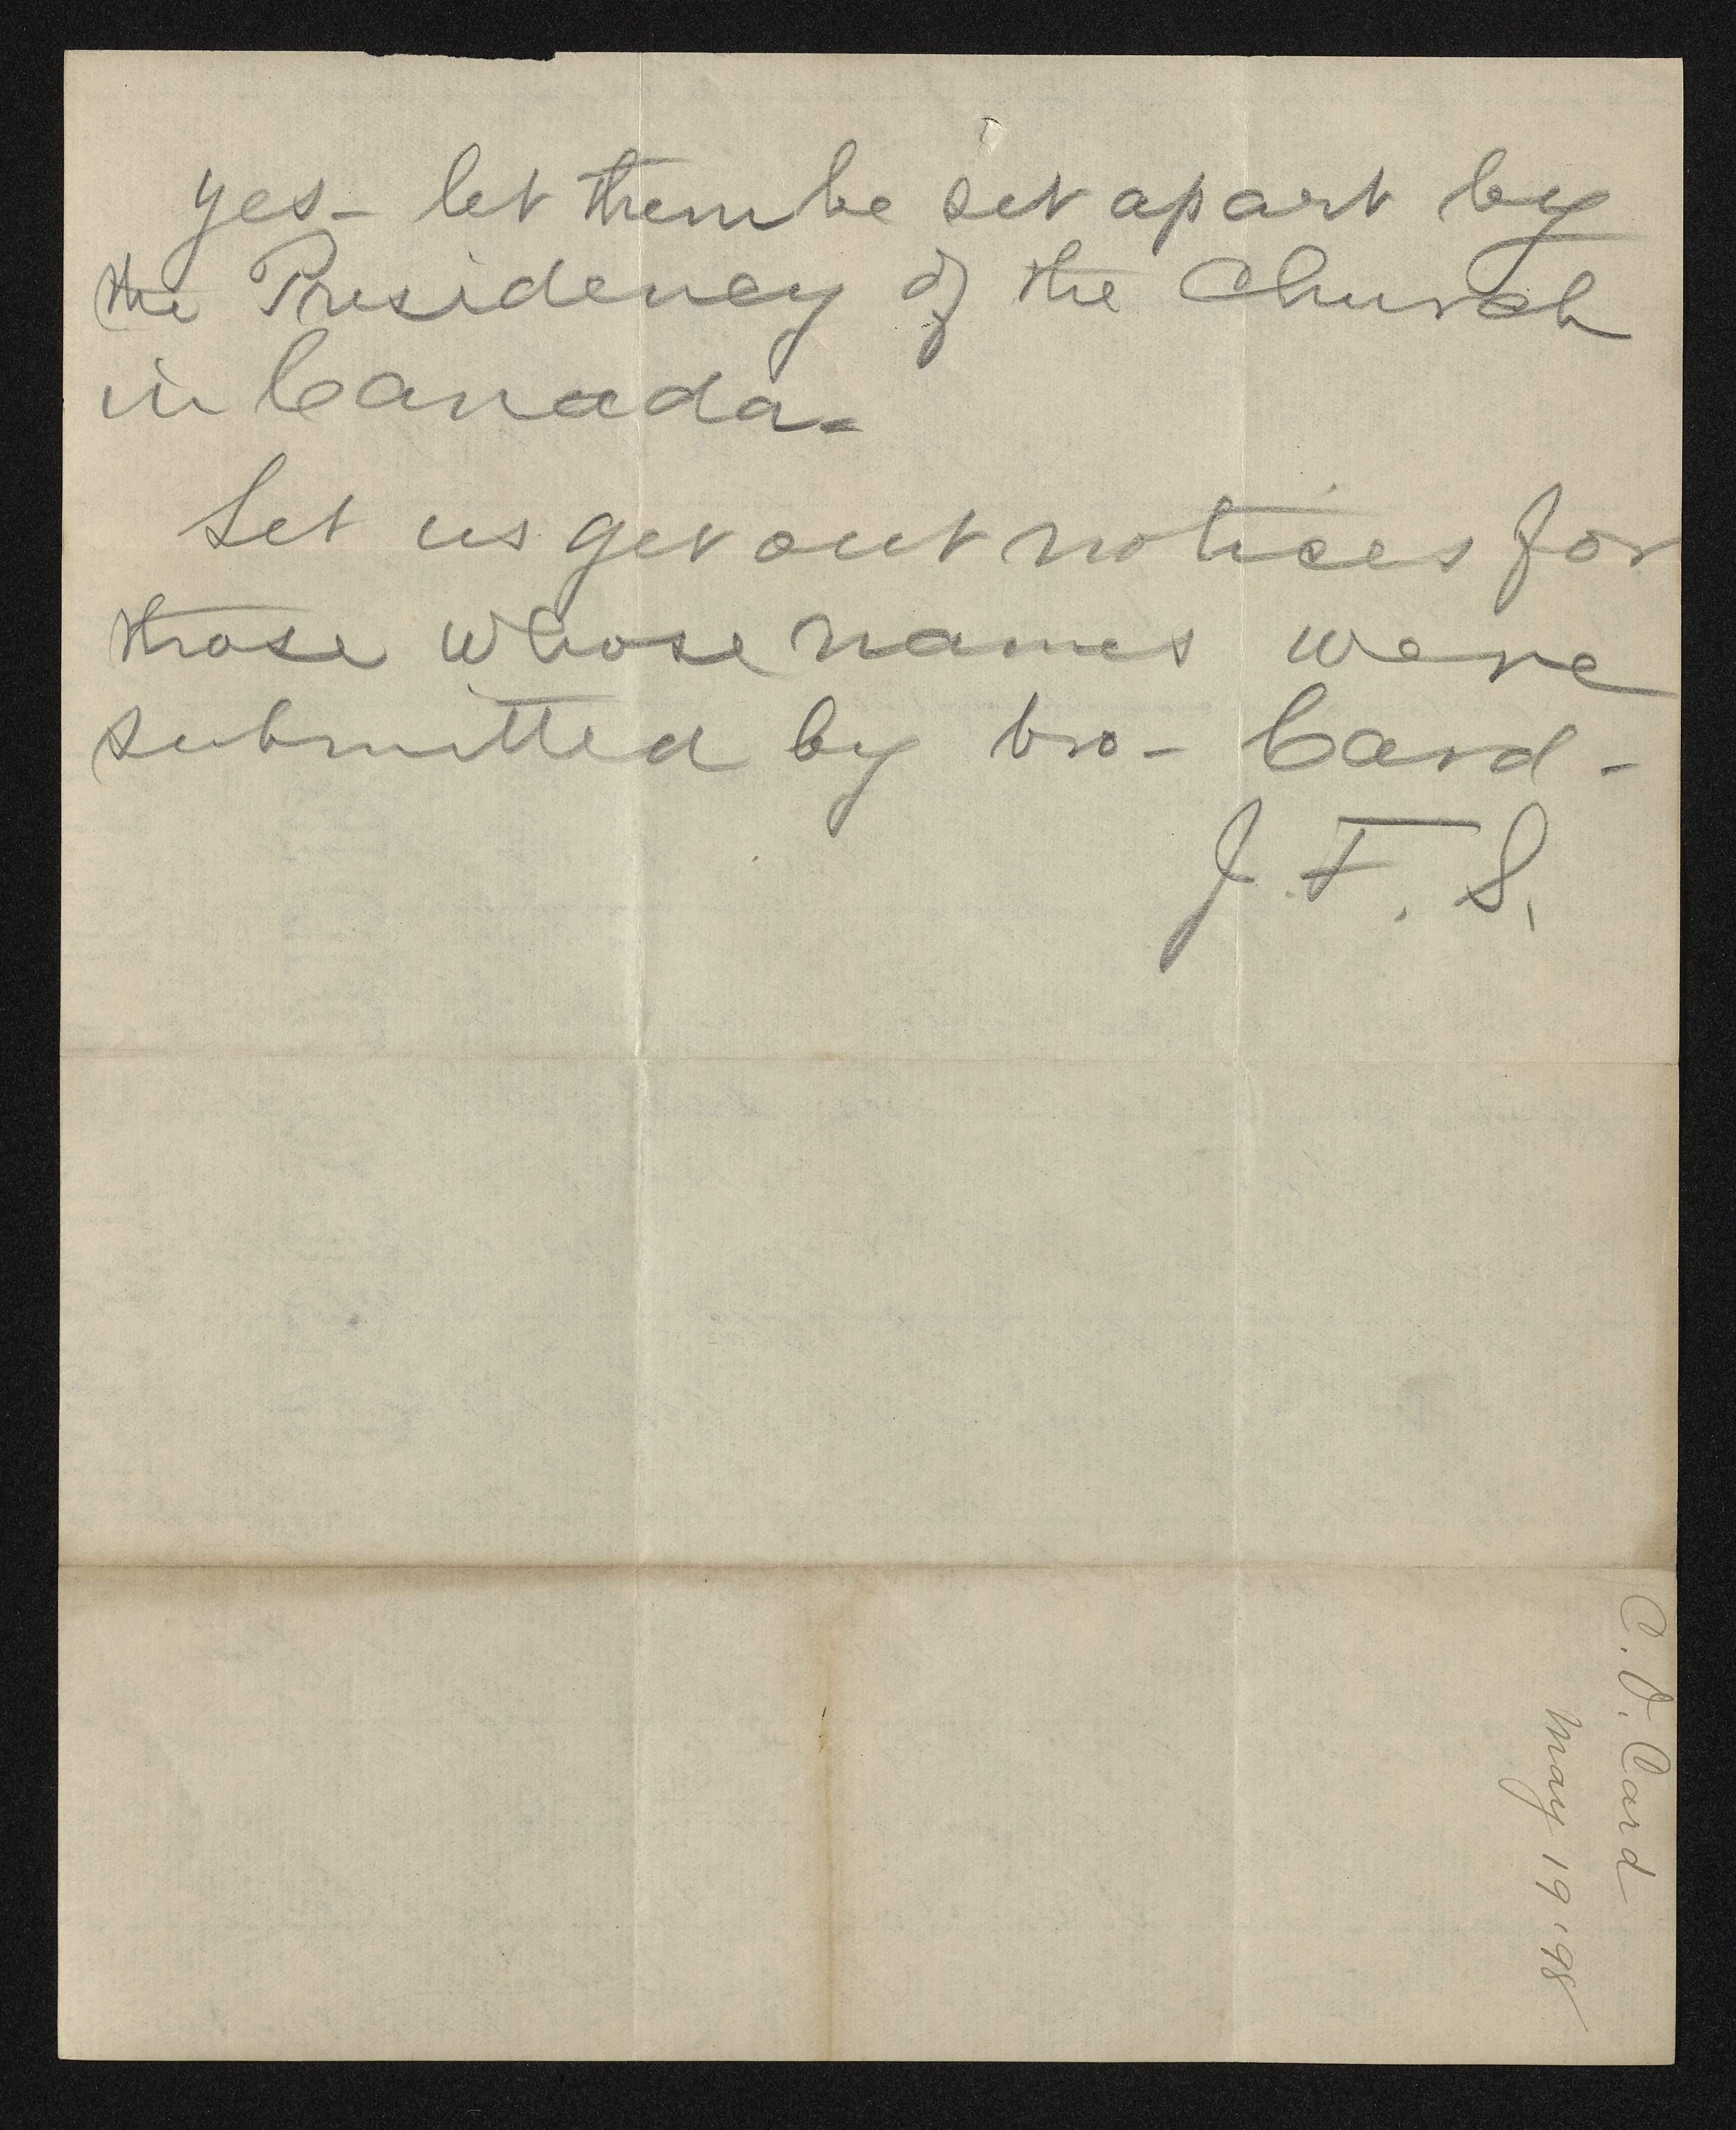 yes - let them be set apart by
the Presidency of the Church
in Canada.
Let us get out notices for
those whose names were
submitted by bro - Card -
J. F. S.
C. O. Card
May 19, '98